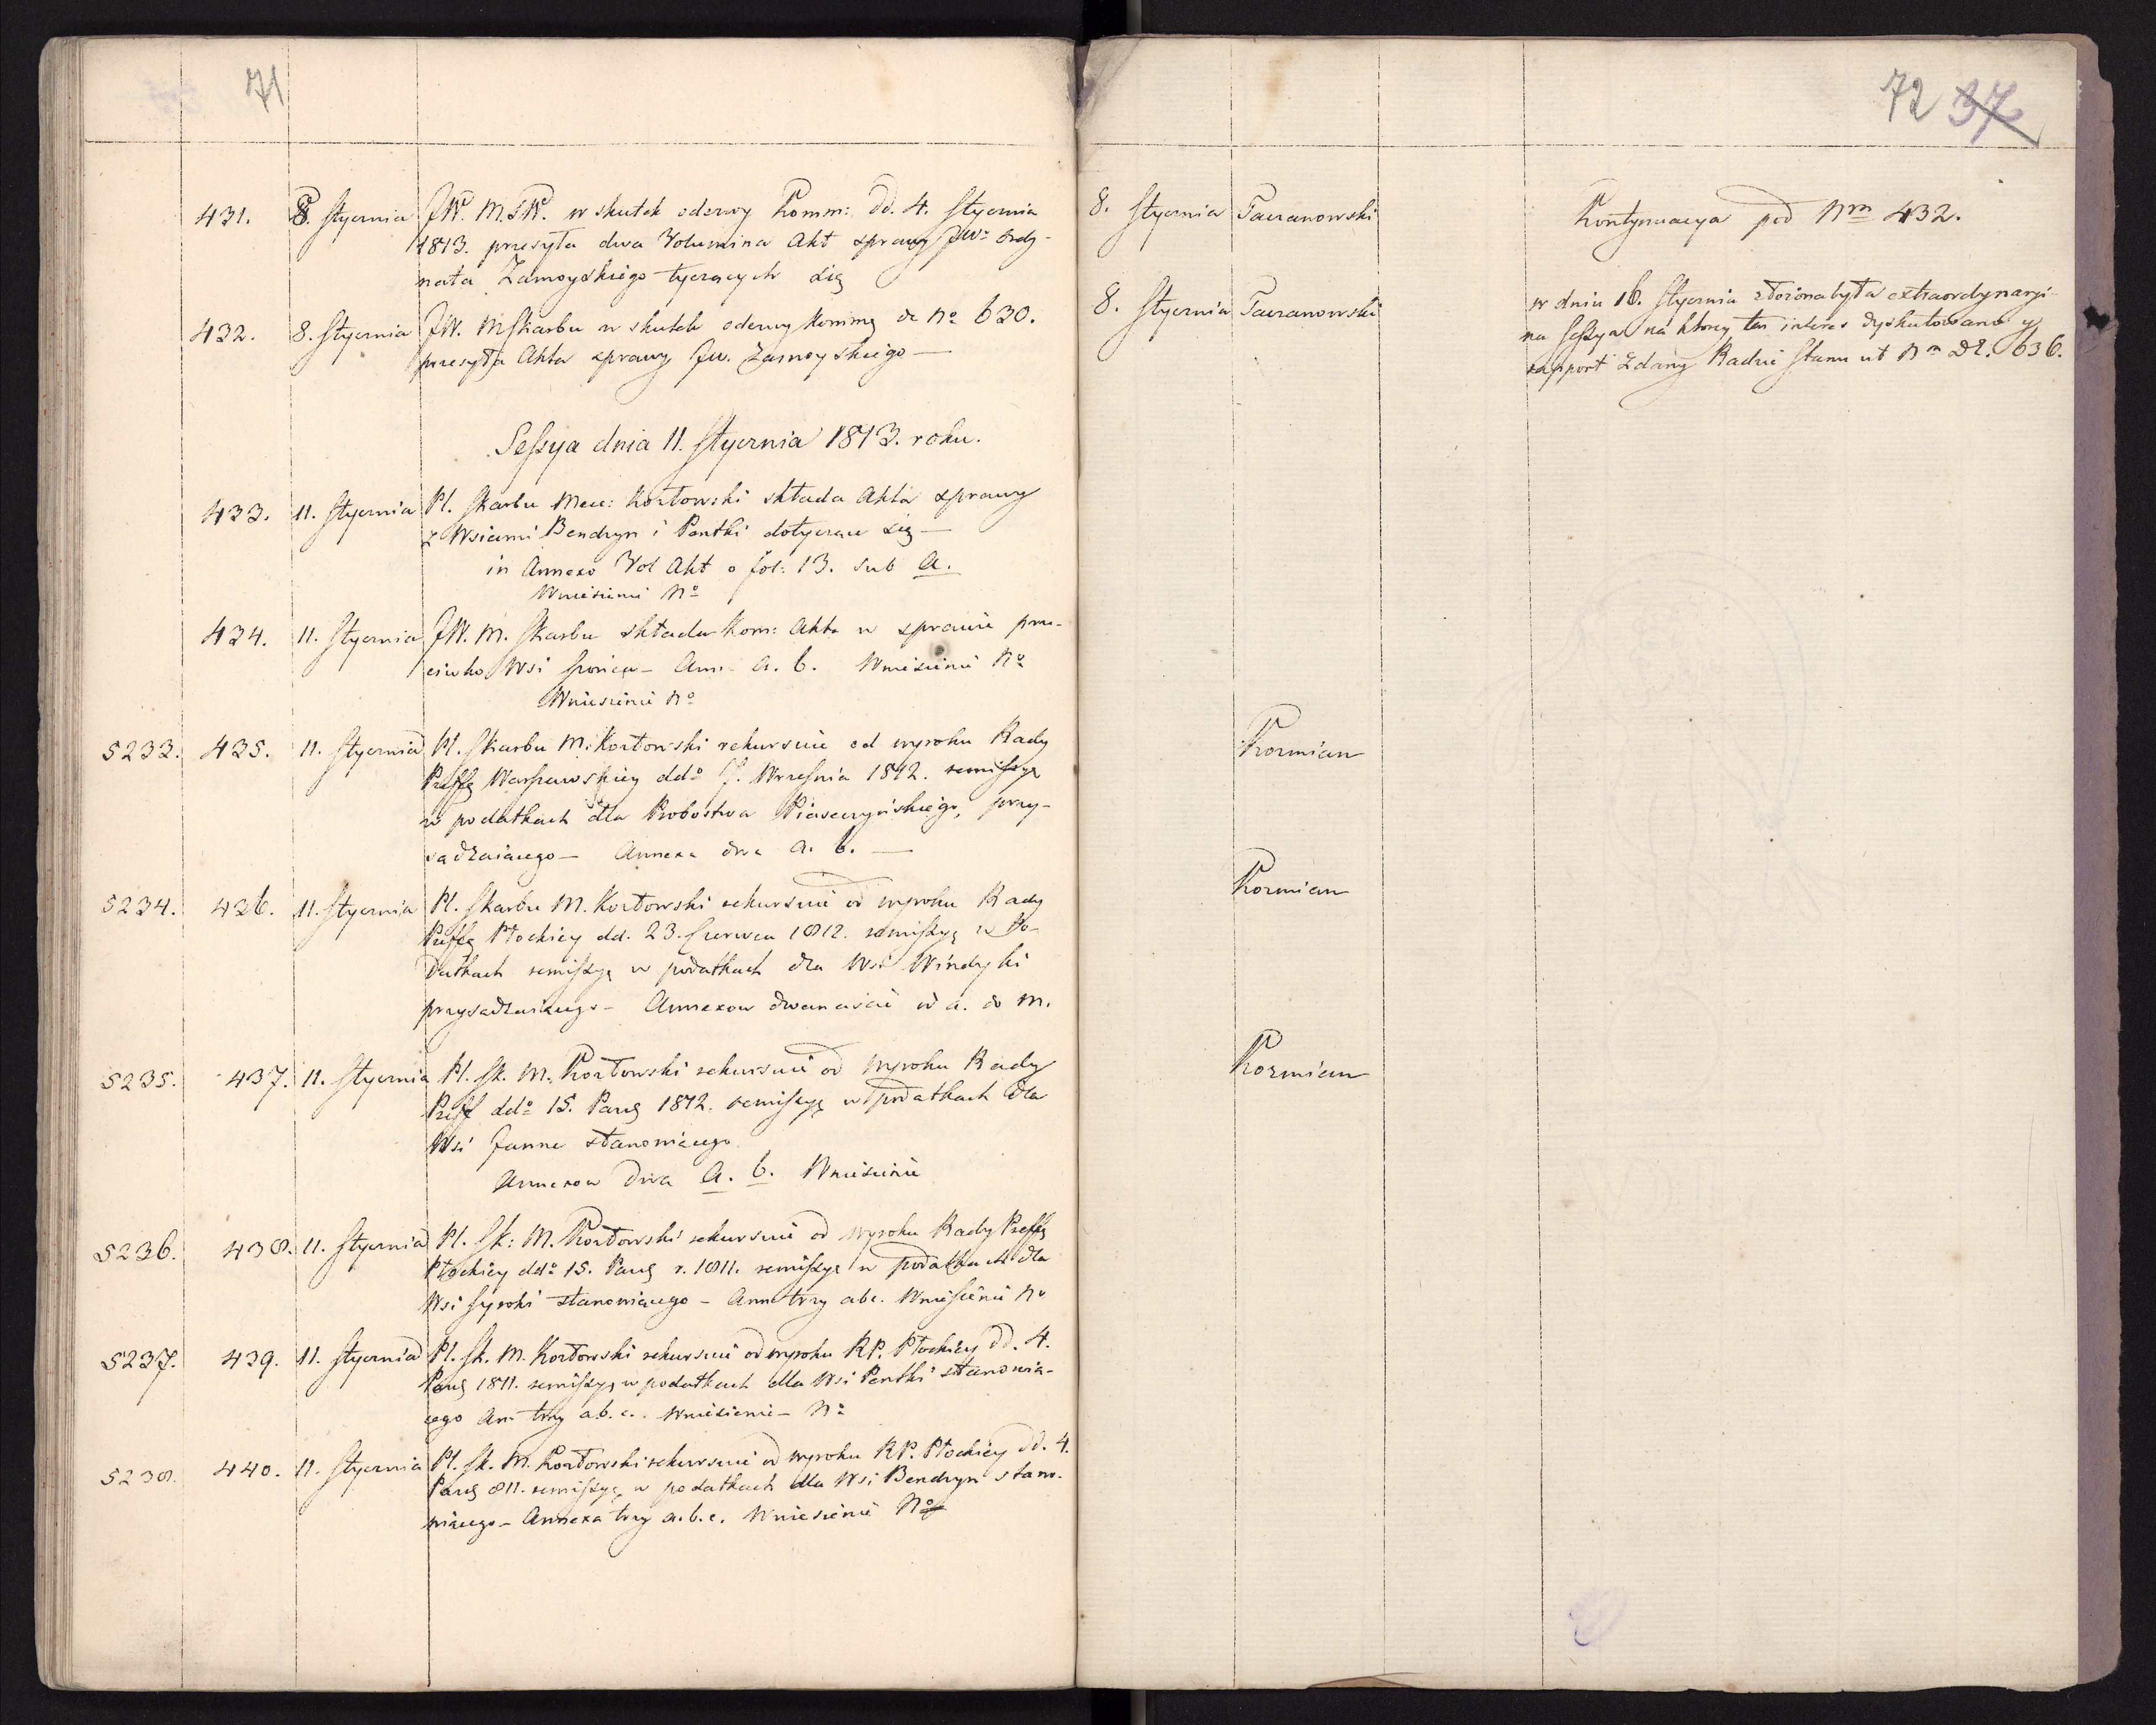 71
431. 8. Stycznia JW. M. S W. w skutek odezwy Komm: dd. 4. Stycznia
1813. przesyła dwa Volumina Akt sprawy JWo Ordy-
nata Zamoyskiego tyczących się
432. 8. Stycznia JW. M Skarbu w skutek odezwy Kommę de No 630.
przesyła Akta sprawy Jw. Zamoyskiego —
Sessya dnia 11. Stycznia 1813. roku.
433. 11. Stycznia Pl. Skarbu Mece: Kozłowski składa Akta sprawy
z Wsiami Bendzyn i Pentki dotyczące się —
in Annexo Vol Akt o fol: 13. sub a.
Wniesienie No
434. 11. Stycznia JW. M. Skarbu składa Kom: Akta w sprawie prze-
ciwko Wsi — Ann: a. b. Wniesienie No
Wniesienie No
5233. 435. 11. Stycznia Pl. Skarbu M. Kozłowski rekursuie od wyroku Rady
Preffę Warszawskiey ddo 7. Września 1812. remissyę
w podatkach dla Probostwa Piaseczyńskiego, przy-
sądzaiącego — Annexa dwa a. b. —
5234. 436. 11. Stycznia Pl. Skarbu M. Kozłowski rekursuie od wyroku Rady
Preffę Płockiey dd. 23. Czerwca 1812. remissyę w Po-
datkach remissyę w podatkach dla Wsi Windyki
przysądzaiącego — Annexow dwanaście od a. do m.
5235. 437. 11. Stycznia Pl. Sk. M. Kozłowski rekursuie od wyroku Rady
Preff ddo 15. Paźg 1812. remissyę w podatkach dla
Wsi stanowiącego
Annexow dwa a. b. Wniesienie
5236. 438. 11. Stycznia Pl. Sk: M. Kozłowski rekursuie od wyroku Rady Preffę
Płockiey ddo 15. Paźg r. 1811. remissyę w podatkach dla
Wsi stanowiącego — Ann trzy abc. Wniesienie No
5237. 439. 11. Stycznia Pl. Sk. M. Kozłowski rekursuie od wyroku RP. Płockiey dd. 4.
Paźg 1811. remissyę w podatkach dla Wsi Pentki stanowią-
cego An: trzy a.b.c. Wniesienie — No
5238. 440. 11. Stycznia Pl. Sk. M. Kozłowski rekursuie od wyroku RP. Płockiey dd. 4.
Paźg 811. remissyę w podatkach dla Wsi Bendzyn stano-
wiącego — Annexa trzy a.b.c. Wniesienie No
72 37
8. Stycznia Tarzanowski Kontynuacya pod Nrm 432.
8. Stycznia Tarzanowski w dniu 16. Stycznia złożona była extraordynaryi-
na Sessya na ktorey ten interes dyskutowano y
rapport zdany Radzie Stanu ut Nm DZ. 636.
Kozmian
Kozmian
Kozmian